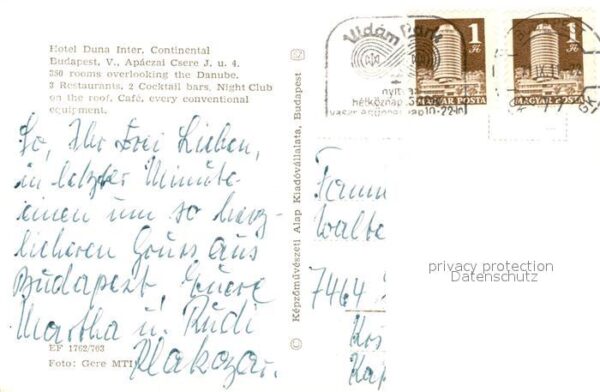 Hotel Duna Inter. Continental
Budapest, V., Apáczai Csere J. u. 4.
350 rooms overlooking the Danube.
3 Restaurants, 2 Cocktail bars, Night Club
on the roof, Café, every conventional
equipment.
So, Ihr Drei Lieben,
in letzter Minute
einen um so herz-
licheren Gruss aus
Budapest, Euere
Martha u. Rudi
EF 1762/763
Foto: Gere MTI
© Képzőművészeti Alap Kiadóvállalata, Budapest
Vidám Park
hétköznap
1 Ft
MAGYAR POSTA
1 Ft
MAGYAR POSTA
7464
privacy protection
Datenschutz